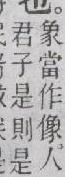 象當作像人
也。君子是則是